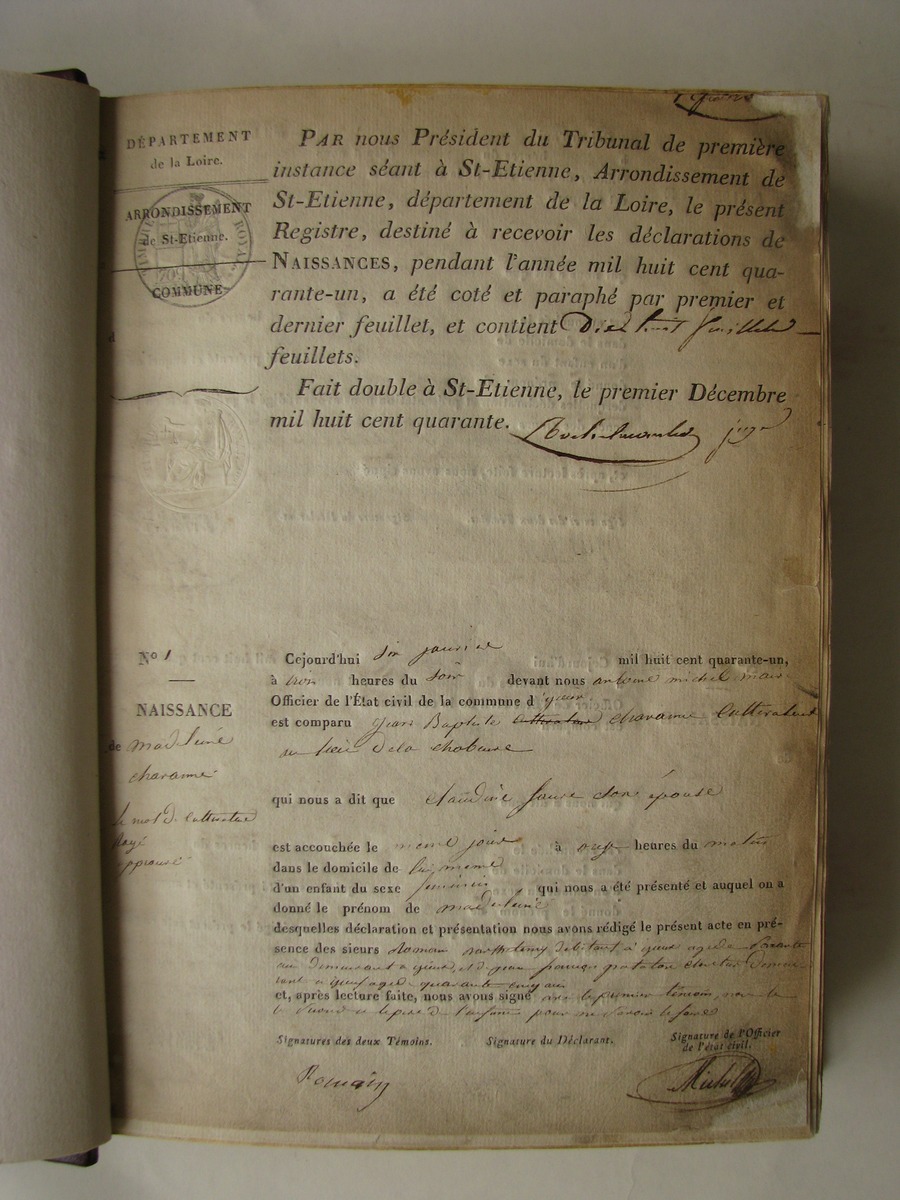 DÉPARTEMENT
de la Loire.
ARRONDISSEMENT
de St-Etienne.
COMMUNE
d
PAR nous Président du Tribunal de première
instance séant à St-Etienne, Arrondissement de
St-Etienne, département de la Loire, le présent
Registre, destiné à recevoir les déclarations de
NAISSANCES, pendant l'année mil huit cent qua-
rante-un, a été coté et paraphé par premier et
dernier feuillet, et contient Dix huit feuillets
feuillets.
Fait double à St-Etienne, le premier Décembre
mil huit cent quarante.
juge
No 1
NAISSANCE
de madeleine
charanne
le mot de cultivateur
Rayé
approuvé
Cejourd'hui six janvier mil huit cent quarante-un,
à trois heures du soir devant nous antoine michel maire
Officier de l'État civil de la commune d
est comparu jean Baptiste charanne cultivateur
au lieu de la
qui nous a dit que claudine faure son épouse
est accouchée le meme jour à onze heures du matin
dans le domicile de lui meme
d'un enfant du sexe feminin qui nous a été présenté et auquel on a
donné le prénom de madeleine
desquelles déclaration et présentation nous avons rédigé le présent acte en pré-
sence des sieurs Romain barthelemy debitant à agé de
ans demeurant a et de jean
agé de quarante cinq ans
et, après lecture faite, nous avons signé avec le premier temoin, non le
second ni le pere de l'enfant pour ne savoir le faire
Signatures des deux Témoins. Signature du Déclarant. Signature de l'Officier
de l'état civil.
Romain
Michel